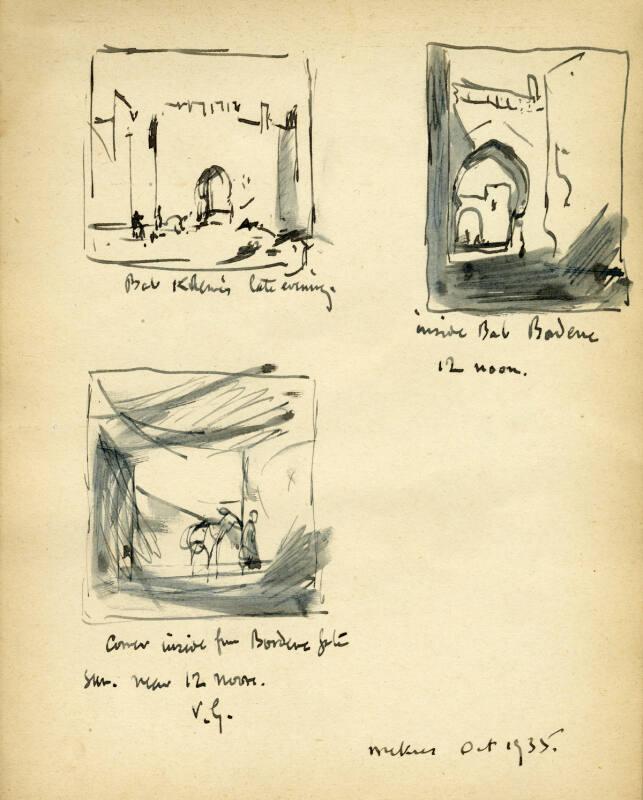 Bab Khemis late evening.
inside Bab Bordene
12 noon.
Corner inside Bordene gate
Sun. near 12 noon.
V.G.
Meknes Oct 1935.